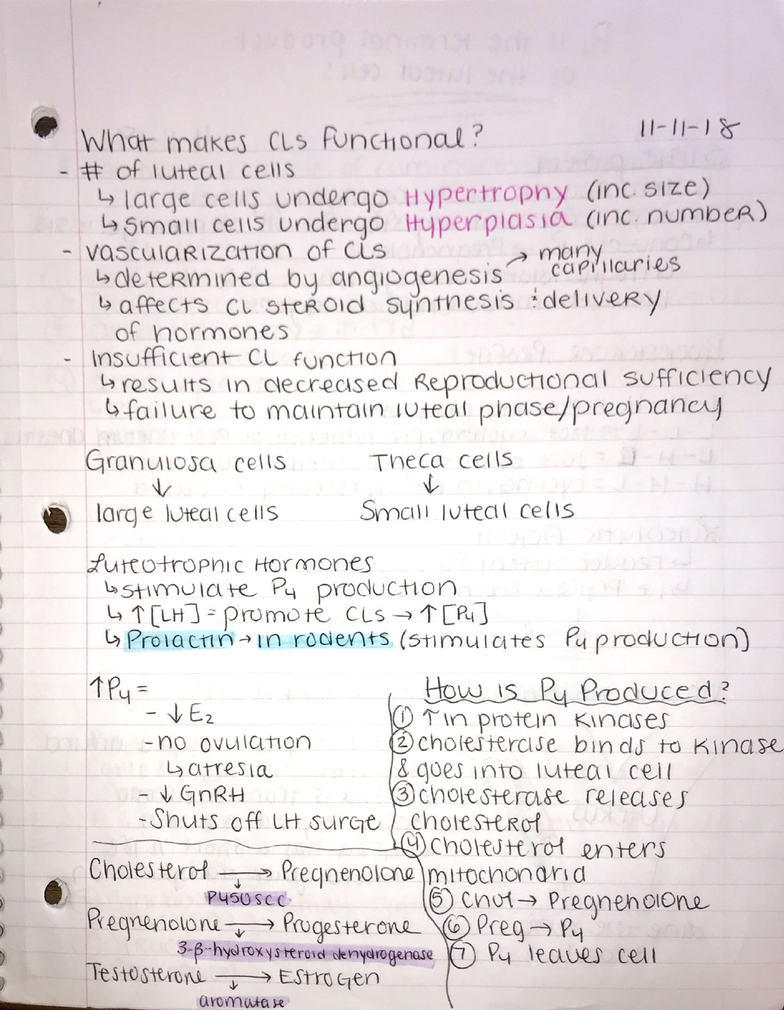 11-11-18
What makes CLs functional?
- # of luteal cells
↳ large cells undergo Hypertrophy (inc. size)
↳ small cells undergo Hyperplasia (inc. number)
- vascularization of CLs
↳ determined by angiogenesis → many capillaries
↳ affects CL steroid synthesis & delivery
of hormones
- Insufficient CL function
↳ results in decreased Reproductional sufficiency
↳ failure to maintain luteal phase/pregnancy
Granulosa cells Theca cells
↓ ↓
large luteal cells Small luteal cells
Luteotrophic Hormones
↳ stimulate P4 production
↳ ↑[LH] = promote CLs → ↑[P4]
↳ Prolactin → in rodents (stimulates P4 production)
↑P4 =
- ↓E2
- no ovulation
↳ atresia
- ↓GnRH
- Shuts off LH surge
How is P4 Produced?
① ↑ in protein kinases
② cholesterase binds to kinase
& goes into luteal cell
③ cholesterase releases
cholesterol
④ cholesterol enters
mitochondria
⑤ Chol → Pregnenolone
⑥ Preg → P4
⑦ P4 leaves cell
Cholesterol → Pregnenolone
↓
P450scc
Pregnenolone → Progesterone
↓
3-β-hydroxysteroid dehydrogenase
Testosterone → Estrogen
↓
aromatase